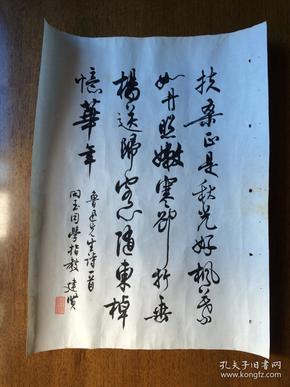 扶桑正是秋光好枫叶
如丹照嫩寒却折垂
杨送归客心随东棹
忆華年
鲁迅先生诗一首
同玉同學指教 建贤
孔夫子旧书网